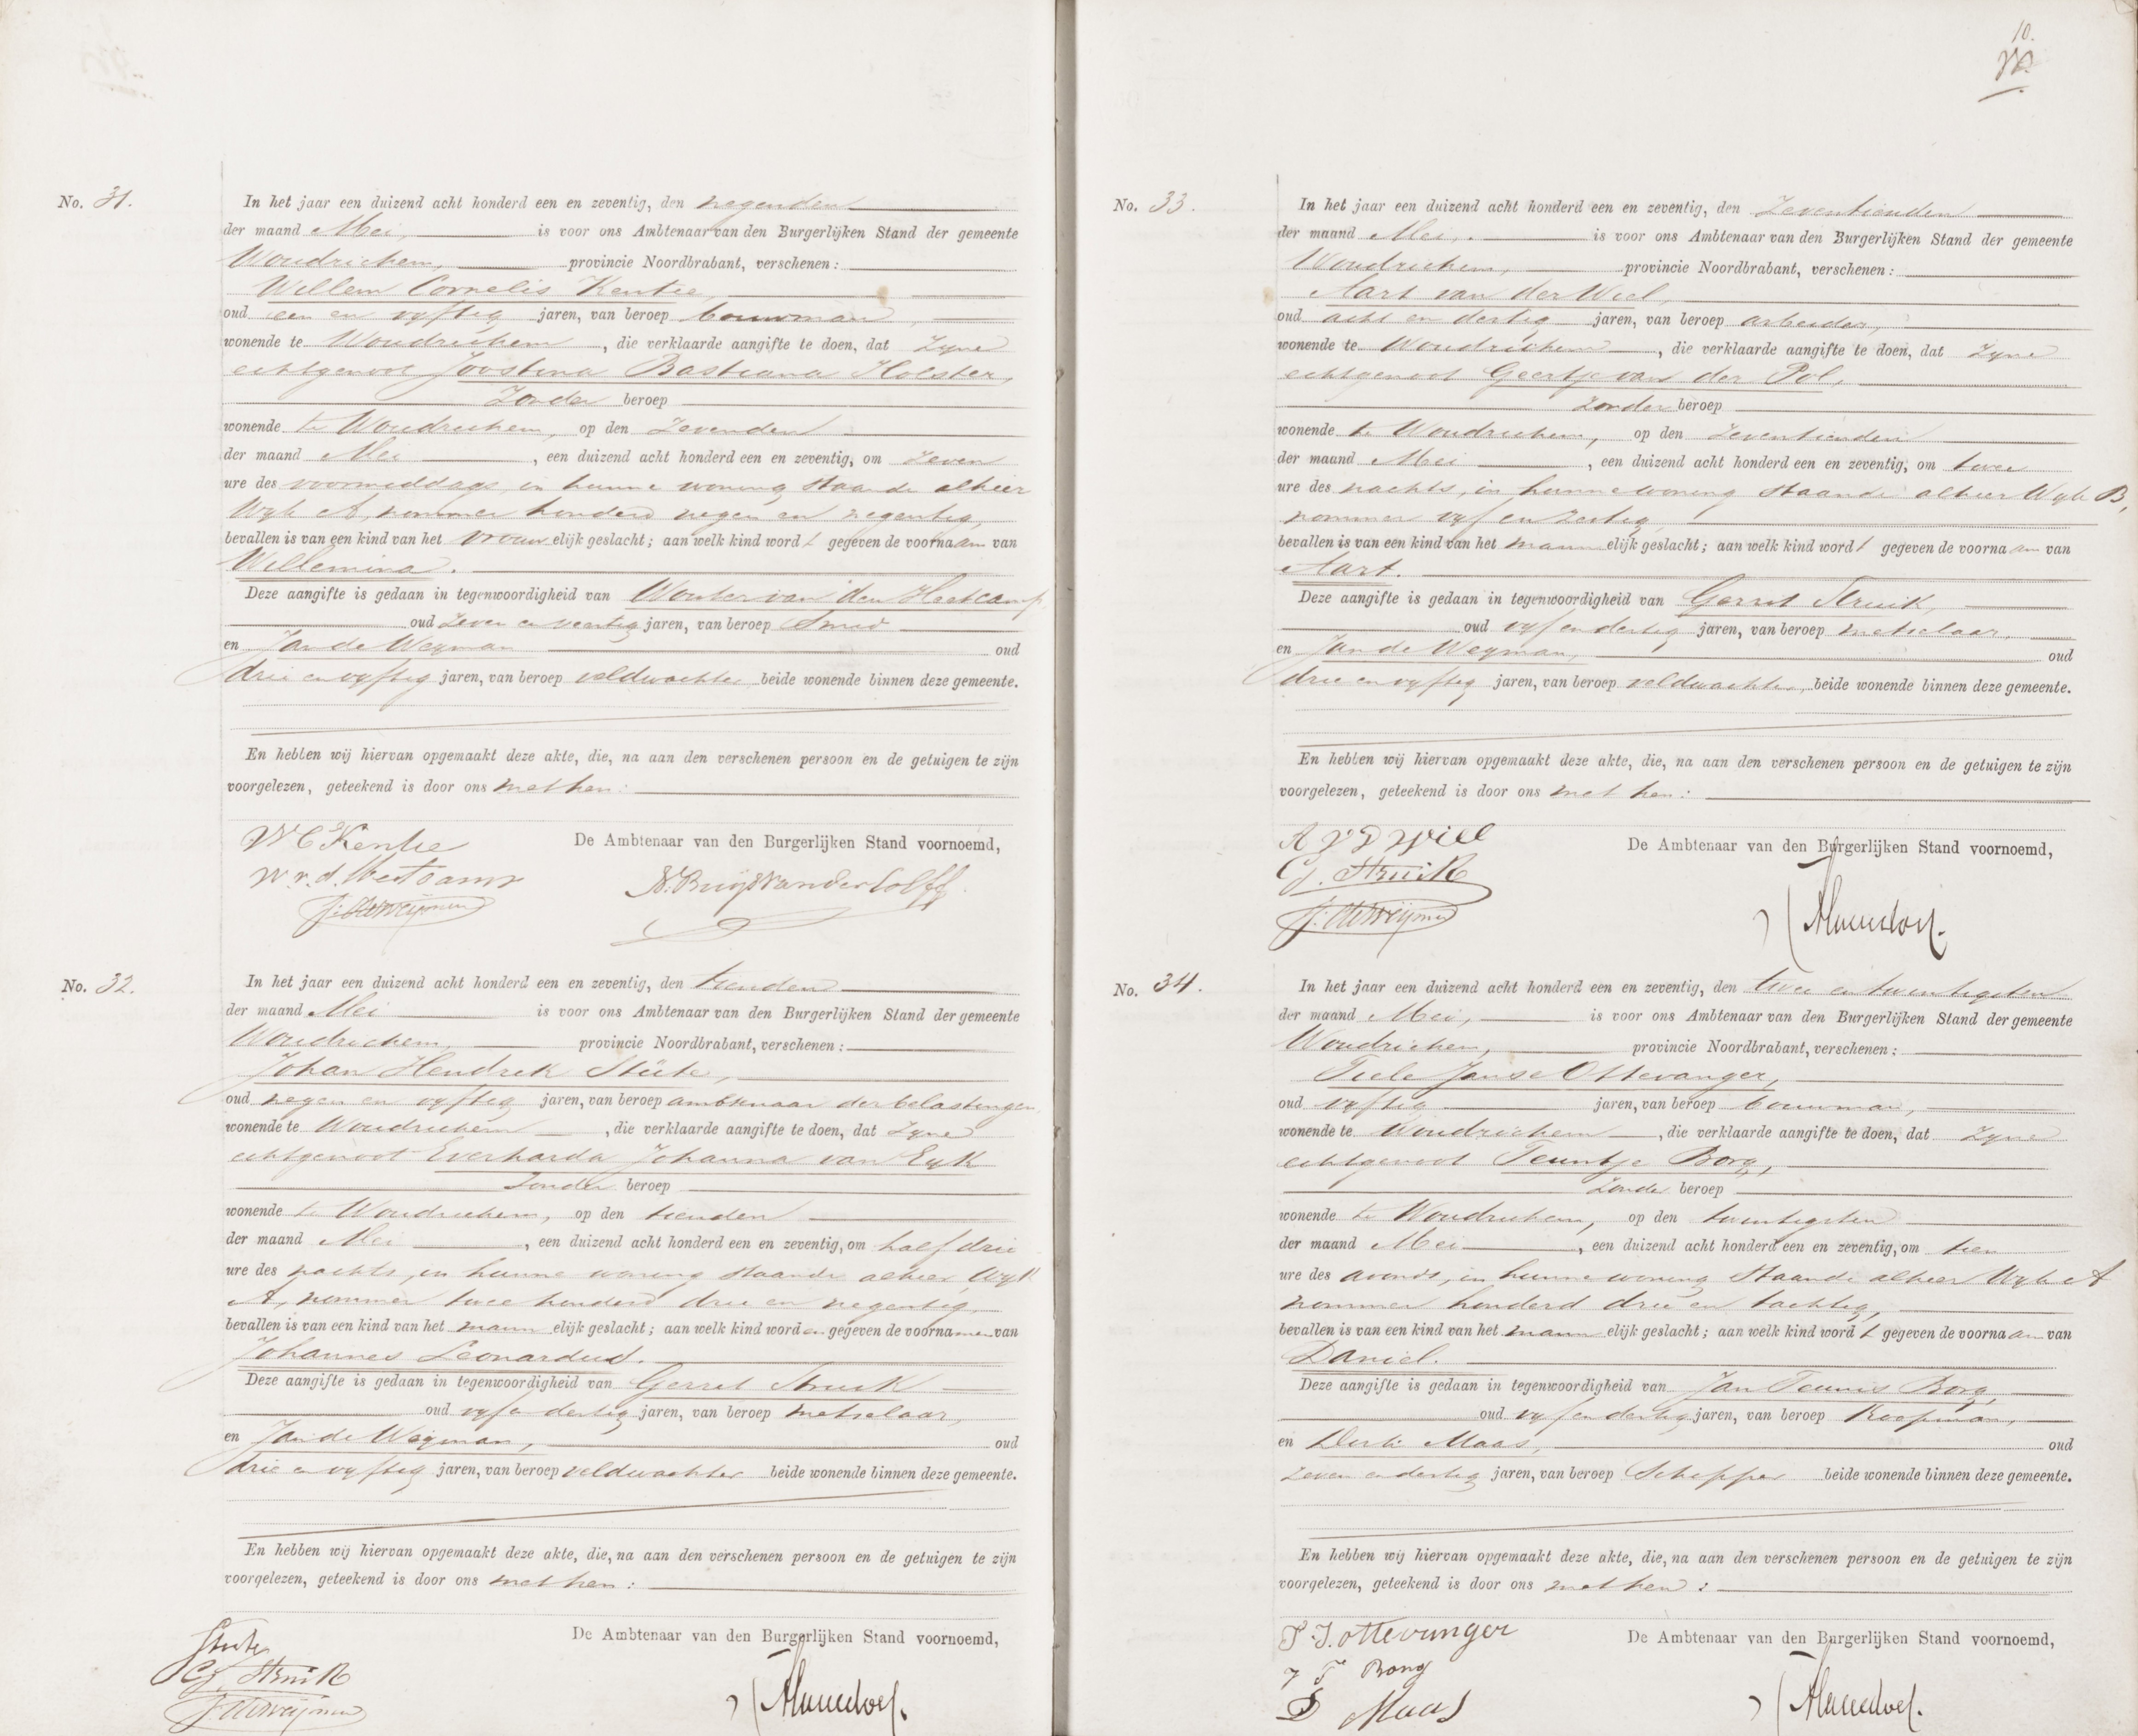 No. 31.
In het jaar een duizend acht honderd een en zeventig, den negenden
der maand Mei, is voor ons Ambtenaar van den Burgerlijken Stand der gemeente
Woudrichem, provincie Noordbrabant, verschenen:
Willem Cornelis Kentie,
oud een en vyftig jaren, van beroep bouwman,
wonende te Woudrichem, die verklaarde aangifte te doen, dat zyne
echtgenoot Joostina Bastiana Holster,
zonder beroep
wonende te Woudrichem, op den zevenden
der maand Mei, een duizend acht honderd een en zeventig, om zeven
ure des voormiddags, in hunne woning staande alhier
Wyk A, nommer honderd negen en negentig,
bevallen is van een kind van het vrouwelijk geslacht; aan welk kind wordt gegeven de voornaam van
Willemina.
Deze aangifte is gedaan in tegenwoordigheid van Wouter van den Heetcamp
oud zeven en veertig jaren, van beroep Smid
en Jan de Weyman oud
drie en vyftig jaren, van beroep veldwachter, beide wonende binnen deze gemeente.
En hebben wij hiervan opgemaakt deze akte, die, na aan den verschenen persoon en de getuigen te zijn
voorgelezen, geteekend is door ons met hen:
De Ambtenaar van den Burgerlijken Stand voornoemd,
W C Kentie
J: de Weijman
No. 32.
In het jaar een duizend acht honderd een en zeventig, den tienden
der maand Mei is voor ons Ambtenaar van den Burgerlijken Stand der gemeente
Woudrichem, provincie Noordbrabant, verschenen:
Johan Hendrik Stüte,
oud negen en vyftig jaren, van beroep ambtenaar der belastingen,
wonende te Woudrichem, die verklaarde aangifte te doen, dat zyne
echtgenoot Everharda Johanna van Eyk
zonder beroep
wonende te Woudrichem, op den tienden
der maand Mei, een duizend acht honderd een en zeventig, om half drie
ure des nachts, in hunne woning staande alhier Wyk
A, nommer twee honderd drie en negentig,
bevallen is van een kind van het mannelijk geslacht; aan welk kind worden gegeven de voornamen van
Johannes Leonardus.
Deze aangifte is gedaan in tegenwoordigheid van Gerrit Struik
oud vyf en dertig jaren, van beroep metselaar,
en Jan de Weyman, oud
drie en vyftig jaren, van beroep veldwachter beide wonende binnen deze gemeente.
En hebben wij hiervan opgemaakt deze akte, die, na aan den verschenen persoon en de getuigen te zijn
voorgelezen, geteekend is door ons met hen:
De Ambtenaar van den Burgerlijken Stand voornoemd,
Stute
G. Struik
J: de Weijman
10.
No. 33.
In het jaar een duizend acht honderd een en zeventig, den zeventienden
der maand Mei, is voor ons Ambtenaar van den Burgerlijken Stand der gemeente
Woudrichem, provincie Noordbrabant, verschenen:
Aart van der Wiel,
oud acht en dertig jaren, van beroep arbeider,
wonende te Woudrichem, die verklaarde aangifte te doen, dat zyne
echtgenoot Geertje van der Pol,
zonder beroep
wonende te Woudrichem, op den zeventienden
der maand Mei, een duizend acht honderd een en zeventig, om twee
ure des nachts, in hunne woning staande alhier Wyk B,
nommer vyf en zestig,
bevallen is van een kind van het mannelijk geslacht; aan welk kind wordt gegeven de voornaam van
Aart.
Deze aangifte is gedaan in tegenwoordigheid van Gerrit Struik,
oud vyf en dertig jaren, van beroep metselaar,
en Jan de Weyman, oud
drie en vyftig jaren, van beroep veldwachter, beide wonende binnen deze gemeente.
En hebben wij hiervan opgemaakt deze akte, die, na aan den verschenen persoon en de getuigen te zijn
voorgelezen, geteekend is door ons met hen:
De Ambtenaar van den Burgerlijken Stand voornoemd,
A v D Wiel
G. Struik
J: de Weijman
No. 34.
In het jaar een duizend acht honderd een en zeventig, den twee en twintigsten
der maand Mei, is voor ons Ambtenaar van den Burgerlijken Stand der gemeente
Woudrichem, provincie Noordbrabant, verschenen:
Teele Janse Ottevanger,
oud vyftig jaren, van beroep bouwman,
wonende te Woudrichem, die verklaarde aangifte te doen, dat zyne
echtgenoot Teuntje Borg,
zonder beroep
wonende te Woudrichem, op den twintigsten
der maand Mei, een duizend acht honderd een en zeventig, om tien
ure des avonds, in hunne woning staande alhier Wyk A
nommer honderd drie en tachtig,
bevallen is van een kind van het mannelijk geslacht; aan welk kind wordt gegeven de voornaam van
Daniel.
Deze aangifte is gedaan in tegenwoordigheid van Jan Teunis Borg,
oud vyf en dertig jaren, van beroep Koopman,
en Dirk Maas, oud
zeven en dertig jaren, van beroep Schipper beide wonende binnen deze gemeente.
En hebben wij hiervan opgemaakt deze akte, die, na aan den verschenen persoon en de getuigen te zijn
voorgelezen, geteekend is door ons met hen:
De Ambtenaar van den Burgerlijken Stand voornoemd,
T. J. Ottevanger
J T Borg
D Maas